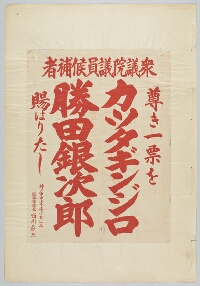 衆議院議員候補者
尊き一票を
カツタギンジロ
勝田銀次郎
賜はりたし